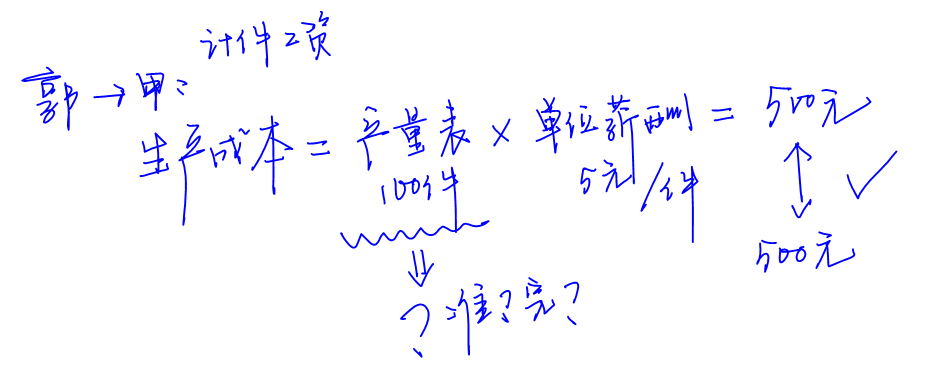 计件工资
郭→甲:
生产成本=产量表×单位薪酬=500元
100件 5元/件
500元
?准?完?